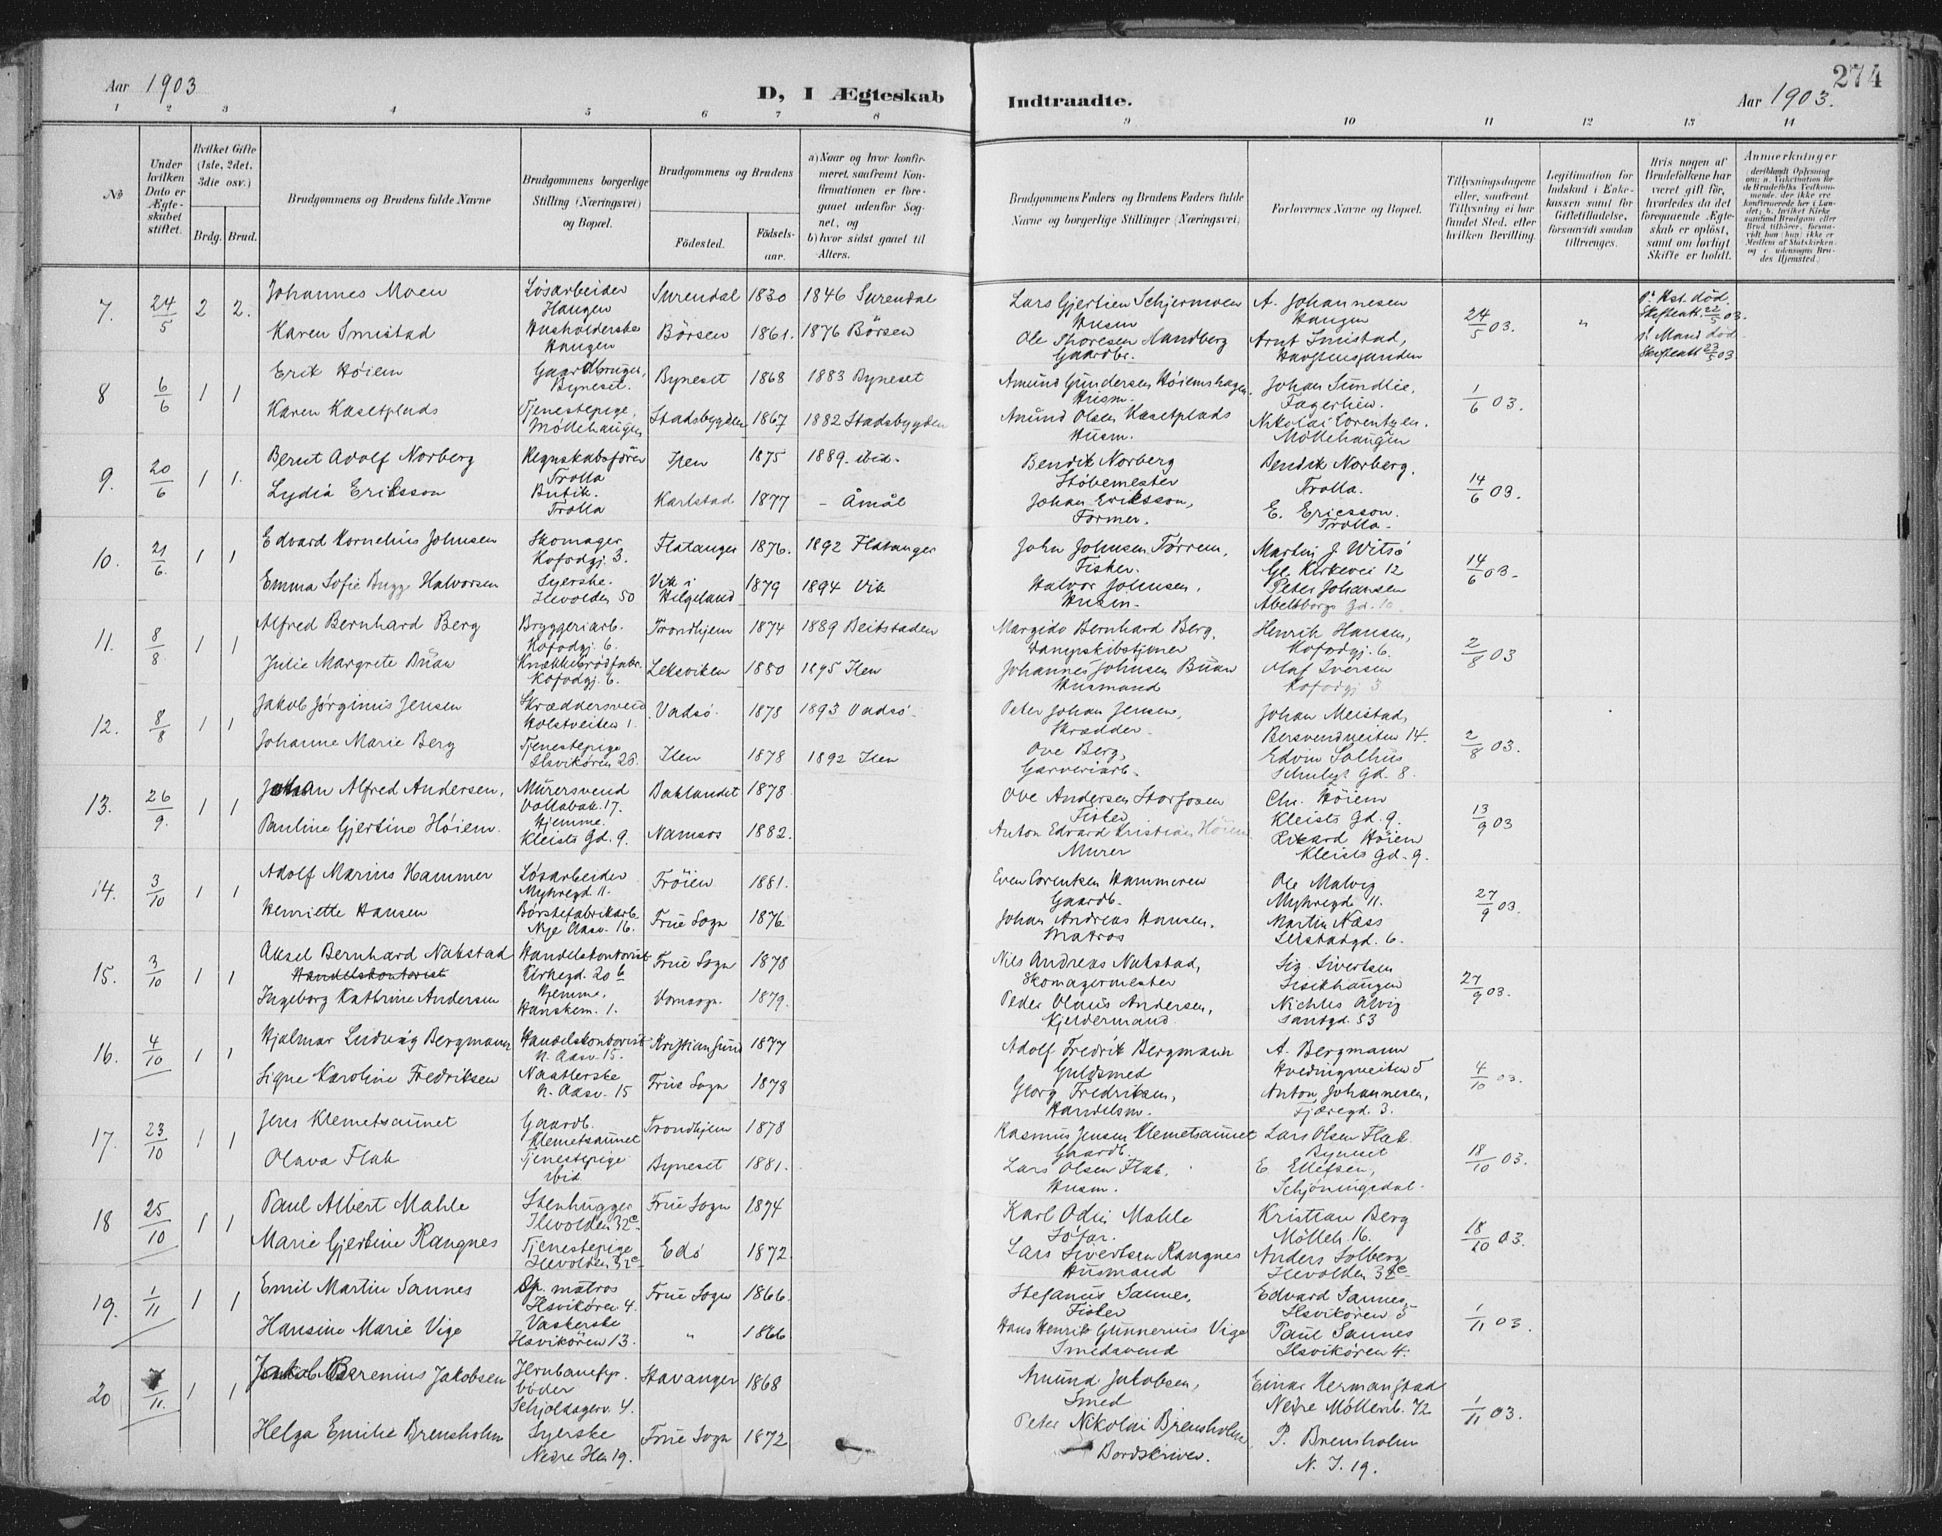 Aar 1903
D, I Ægteskab
Indtraadte.
Aar 1903.
274
1 2 3 4 5 6 7 8 9 10 11 12 13 14
No
Under hvilken Dato er Ægteskabet stiftet.
Hvilket Gifte (1ste, 2det, 3die osv.)
Brdg. Brud.
Brudgommens og Brudens fulde Navne
Brudgommens borgerlige Stilling (Næringsvei) og Bopæl.
Brudgommens og Brudens
Fødested.
Fødselsaar.
a) Naar og hvor konfirmeret, saafremt Konfirmationen er foregaaet udenfor Sognet, og
b) hvor sidst gaaet til Alters.
Brudgommens Faders og Brudens Faders fulde Navne og borgerlige Stillinger (Næringsvei)
Forlovernes Navne og Bopæl.
Tillysningsdagene eller, saafremt Tillysning ei har fundet Sted, efter hvilken Bevilling.
Legitimation for Indskud i Enkekassen samt for Giftetilladelse, forsaavidt saadan tiltrænges.
Hvis nogen af Brudefolkene har været gift før, hvorledes da det foregaaende Ægteskab er opløst, samt om lovligt Skifte er holdt.
Anmerkninger
7. 24/5 2 2.
Johannes Moen Løsarbeider Haugen Surendal 1830 1846 Surendal
Lars Gjertsen Schjermoen Husm A. Johannesen Haugen 24/5 03. " Hst. død. Skifteatt. 22/5 03.
Karen Smistad Husholderske Haugen Börsen 1861. 1876 Börsen
Ole Thoresen Handberg Gaardbr. Arnt Smistad, Mand død Skifteatt 23/5 03
8 6/6 1 1
Erik Höiem Gaardbruger, Byneset. Byneset 1868 1883 Byneset
Amund Gundersen Höiemshagen. Husm. Johan Sundlie, Fagerlien. 1/6 03.
Karen Kasetplads Tjenestepige, Möllehaugen Stadsbygden 1867 1882 Stadsbygden
Amund Olsen Kasetplads Husm. Nikolai Lorentzen. Möllehaugen
9. 20/6 1 1.
Bernt Adolf Norberg Regnskabsfører Trolla Ilen 1875 1889. ibid.
Bendik Norberg Støbemester Bendik Norberg. Trolla. 14/6 03.
Lydia Eriksson Butik. Trolla Karlstad 1877 - Åmål
Johan Eriksson, Former. E. Ericsson. Trolla.
10. 21/6. 1 1
Edvard Kornelius Johnsen Skomager Kofodgj. 3. Flatanger 1876. 1892 Flatanger
John Johnsen Törrem, Fisker. Martin J. Witsö Gl. Kirkevei 12 14/6 03.
Emma Sofie Bugge Halvorsen Syerske. Ilevolden 50 Vik i Helgeland 1879 1894 Vik
Halvor Johnsen. Husm. Peter Johansen Abelsborgs Gd. 10
11. 8/8 1 1
Alfred Bernhard Berg Bryggeriarb. Kofodgj. 6. Trondhjem 1874 1889 Beitstaden
Margido Bernhard Berg, Henrik Hansen, Kofodgj. 6. 2/8 03
Julie Margrete Büan Knækkebrødfabr. Kofodgj. 6. Leksviken 1880 1895 Ilen
Johannes Johnsen Buan Husmand Olaf Iversen Kofodgj 3
12. 8/8 1 1
Jakob Jørginus Jensen Skræddersvend Holstveiten 1. Vadsö. 1878 1893 Vadsö.
Peter Johan Jensen, Skrædder. Johan Meistad, Bersvendveiten 14. 2/8 03.
Johanne Marie Berg Tjenestepige Ilsvikören 28. Ilen 1878 1892 Ilen
Ove Berg, Garveriarb. Edvin Solhus Schultz Gd. 8.
13. 26/9. 1 1
Johan Alfred Andersen, Murersvend Vollabak. 17. Baklandet 1878.
Ove Andersen Storfosen Fisker Chr. Höiem Kleists Gd. 9. 13/9 03
Pauline Gjertine Höiem. Hjemme. Kleists Gd. 9. Namsos 1882.
Anton Edvard Kristian Höiem Murer Rikard Höiem Kleists Gd. 9.
14. 3/10 1 1
Adolf Marius Hammer Løsarbeider Myhregd. 11. Fröien 1881.
Even Lorentsen Hammeren Gaardb. Ole Malvig Myhregd 11. 27/9 03.
Henriette Hansen Børstefabrikarb. Nye Aasv. 16. Frue Sogn 1876.
Johan Andreas Hansen. Matros Martin Næss Leistadgd. 6.
15. 3/10 1 1
Aksel Bernhard Nakstad Handelskontorist Kirkegd. 20 b Frue Sogn 1878
Handelskontorist
Nils Andreas Nakstad, Skomagermester Sig. Sivertsen 27/9 03.
Ingeborg Kathrine Andersen Hjemme, Hanskem. 1. Domsogn. 1879.
Peder Olaus Andersen, Kjeldermand Nichles Alvig Sandgd. 53
16. 4/10 1 1
Hjalmar Ludvig Bergmann Handelskontorist N. Aasv. 15. Kristiansund 1877
Adolf Fredrik Bergmann Guldsmed A. Bergmann Hvedingsveiten 5 4/10 03.
Signe Karoline Fredriksen Naatlerske N. Aasv. 15 Frue Sogn 1878
Georg Fredriksen, Handelsm. Anton Johannesen, Fjæregd. 3.
17. 23/10 1 1
Jens Klemetsaunet Gaardb. Klemetsaunet Trondhjem 1878
Rasmus Jensen Klemetsaunet Gaardb. Lars Olsen Flak. Byneset 18/10 03.
Olava Flak Tjenestepige ibid Byneset 1881.
Lars Olsen Flak. Husm. E. Ellefsen, Schjöningsdal.
18 25/10 1 1
Paul Albert Mahle Stenhugger Ilevolden 32c Frue Sogn 1874
Karl Odin Mahle Söfar. Kristian Berg Mölleb. 16. 18/10 03.
Marie Gjertine Rangnes Tjenestepige Ilevolden 32c Edö 1872.
Lars Sivertsen Rangnes Husmand Anders Solberg Ilevolden 32c
19. 1/11 1 1
Emil Martin Sannes Op. matros Ilsvikören 4. Frue Sogn 1866.
Stefanus Sannes, Fisker Edvard Sannes, Ilsvikören 5 1/11 03.
Hansine Marie Vige Vaskerske Ilsvikören 13. " 1866
Hans Henrik Gunnerius Vige Smedsvend Paul Sannes Ilsvikören 4.
20 /11. 1 1
Jakob Berenius Jakobsen Jernbanefyrböder Schjoldagerv. 4. Stavanger 1868
Amund Jakobsen, Smed Einar Hermanstad Nedre Mölleb. 72 1/11 03.
Helga Emilie Brensholm Syerske Nedre Ilen 19. Frue Sogn 1872
Peter Nikolai Brensholm Bordskriver. P. Brensholm N. I. 19.